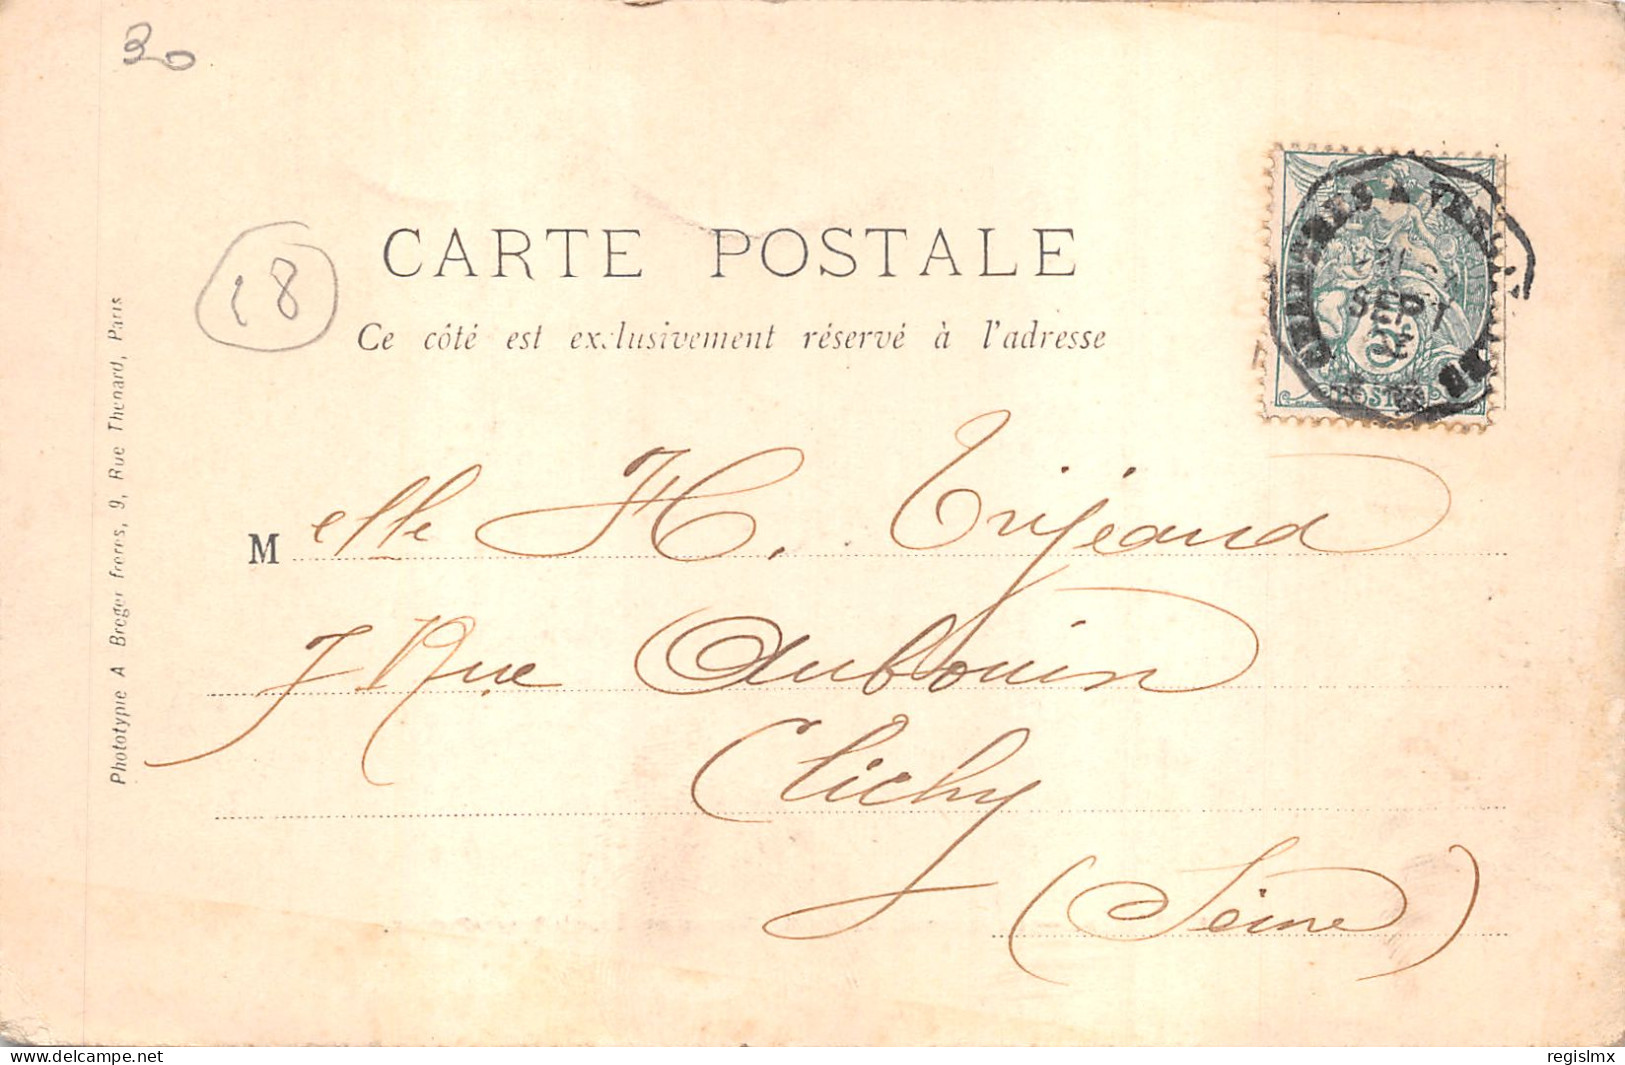 30
18
CARTE POSTALE
Ce côté est exclusivement réservé à l'adresse
SEPT
POSTES
Phototypie A Breger frères, 9, Rue Thénard, Paris
Melle H. Trijeaud
7 Rue Aubouin
Clichy
(Seine)
www.delcampe.net
regislmx